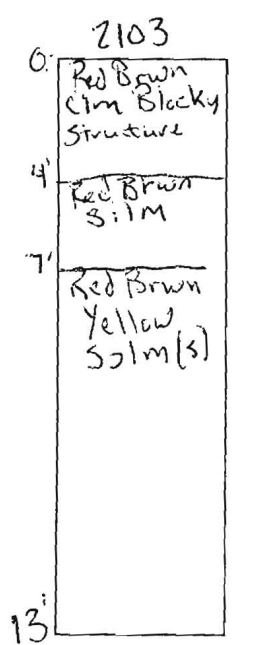 2103
0'
Red Brwn
Clm Blocky
Structure
4'
Red Brwn
Silm
7'
Red Brwn
Yellow
Salm (s)
13'